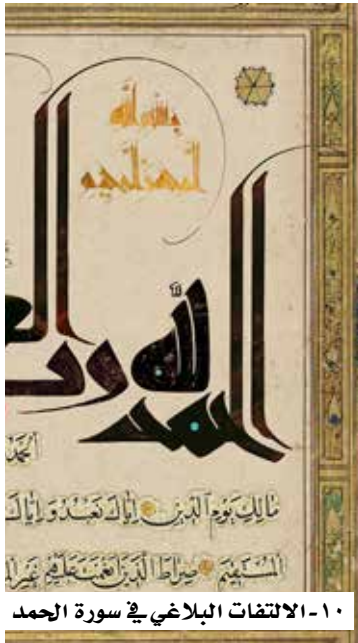 بسم الله
الرحمن الرحيم
الحمد لله ر
الحمد
مَالِكِ يَوْمِ ٱلدِّينِ إِيَّاكَ نَعْبُدُ وَإِيَّاكَ
المُسْتَقِيمَ صِرَاطَ الَّذِينَ أَنْعَمْتَ عَلَيْهِمْ غَيْرِ
١٠-الالتفات البلاغي في سورة الحمد